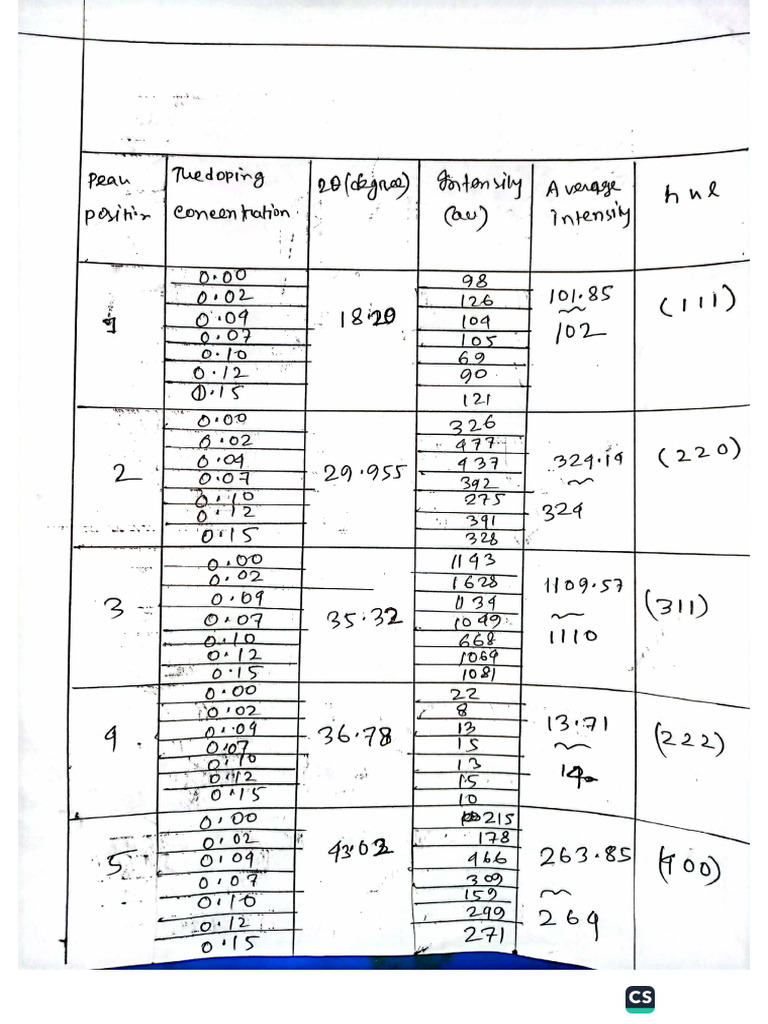 Peak Position
The doping Concentration
2θ (degree)
Intensity (au)
Average intensity
h k l
1
0.00
0.02
0.04
0.07
0.10
0.12
0.15
18.20
98
126
104
105
69
90
121
101.85
~
102
(111)
2
0.00
0.02
0.04
0.07
0.10
0.12
0.15
29.955
326
477
437
392
275
391
328
324.14
~
324
(220)
3
0.00
0.02
0.04
0.07
0.10
0.12
0.15
35.32
1143
1628
1134
1049
668
1064
1081
1109.57
~
1110
(311)
4
0.00
0.02
0.04
0.07
0.10
0.12
0.15
36.78
22
8
13
15
13
15
10
13.71
~
14
(222)
5
0.00
0.02
0.04
0.07
0.10
0.12
0.15
43.02
215
178
466
309
159
249
271
263.85
~
264
(400)
CS